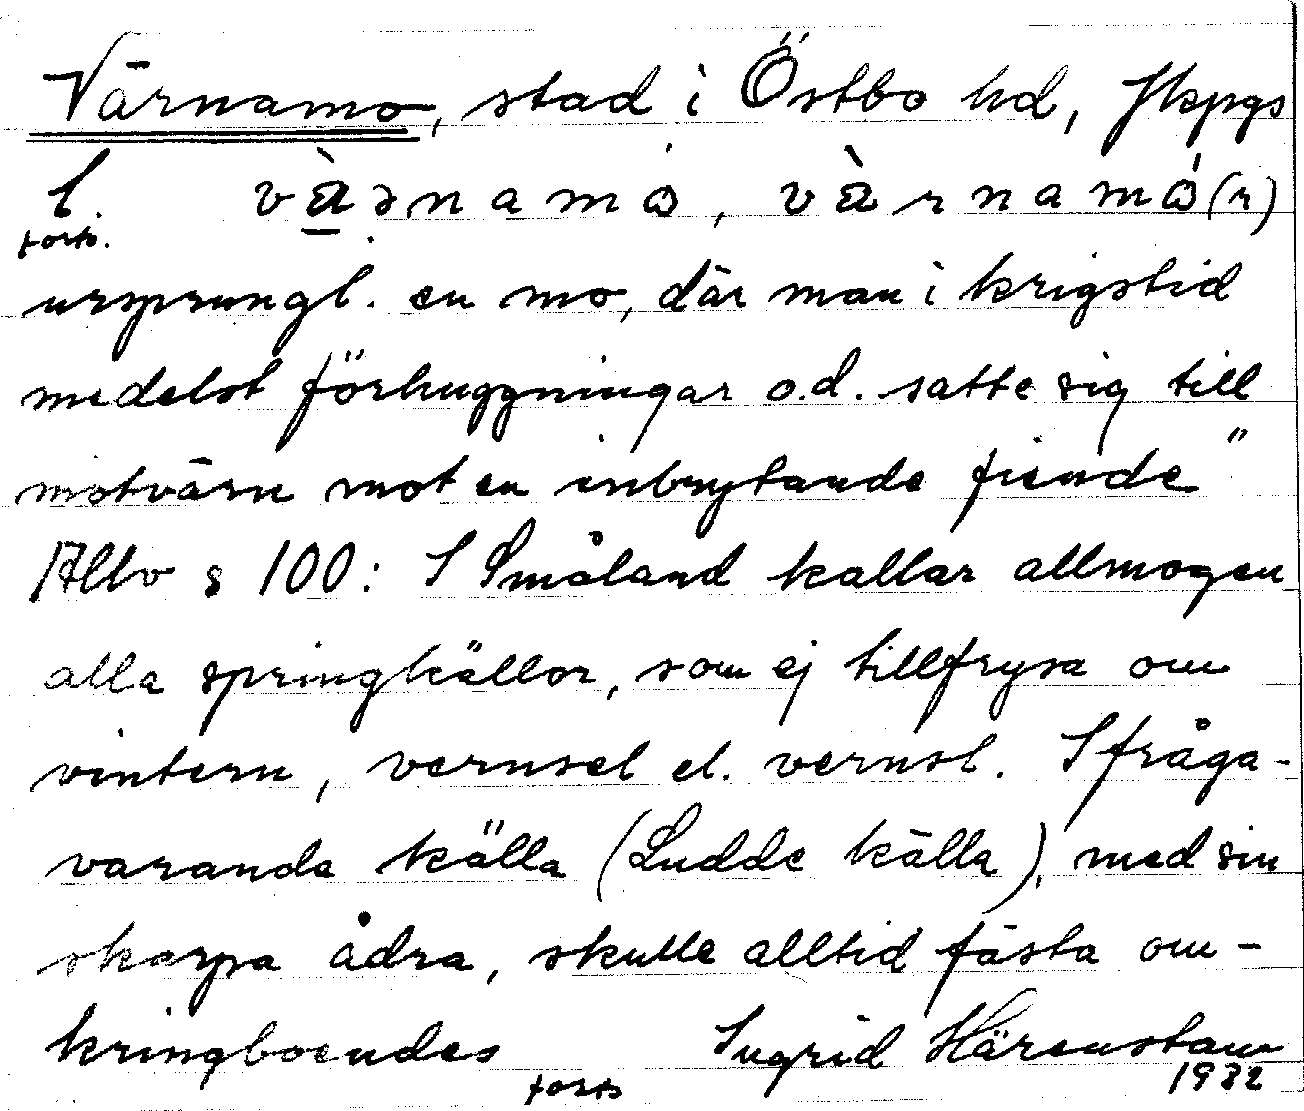 Värnamo, stad i Östbo hd, Jkpgs
l. vànamó, vàrnamó(r)
forts.
ursprungl. en mo, där man i krigstid
medelst förhuggningar o.d. satte sig till
motvärn mot en inbrytande fiende"
Allvo s 100: I Småland kallar allmogen
alla springkällor, som ej tillfrysa om
vintern, vernsel el. vernsl. I fråga-
varanda källa (Ludde källa), med sin
skarpa ådra, skulle alltid fästa om-
kringboendes Ingrid Härenstam
forts 1932